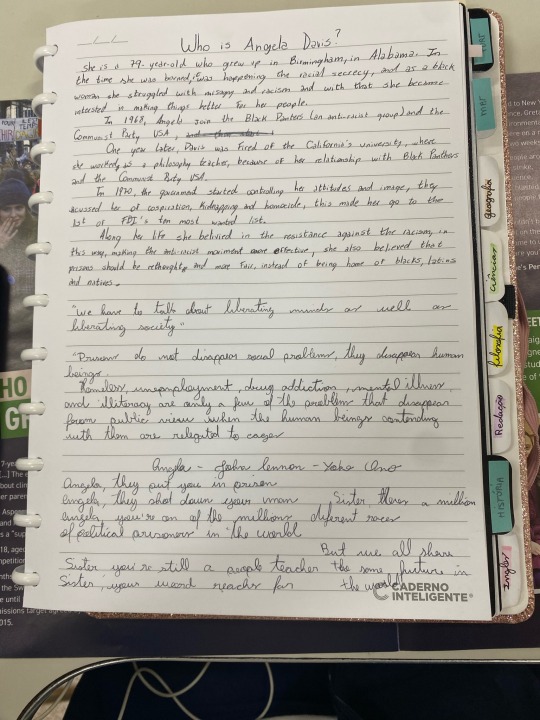 Who is Angela Davis?
she is a 79-year-old who grew up in Birmingham, in Alabama. In
the time she was borned, it was happening the racial secrecy, and as a black
woman she struggled with misogny and racism and with that she became
intersted in making things better for her people.
In 1968, Angela join the Black Panters (an anti-racist group) and the
Communist Party, USA,
One year later, Davis was fired of the California's university, where
she worked as a philosophy teacher, because of her relationship with Black Panthers
and the Communist Party USA.
In 1970, the government started controlling her attitudes and image, they
acussed her of cospiration, kidnapping and homocide, this made her go to the
list of FBI's ten most wanted list.
Along her life she belivied in the resistance against the racism, in
this way, making the anti-racist moviment more effective, she also believed that
prisons should be rethought and more fair, instead of being home of blacks, latins
and natives.
"We have to talk about liberating minds as well as
liberating society"
"Prisons do not disappear social problems, they disappear human
beings.
Homeless, unemployment, drug addiction, mental illness,
and illiteracy are only a few of the problems that disappear
from public view when the human beings contending
with them are relegated to cages
Angela - John Lennon - Yoko Ono
Angela, they put you in prison
Angela, they shot down your man
Angela you're on of the millions
of political prisoners in the world
Sister, there's a million
diferent races
But we all share
the same future in
the world
Sister you're still a people teacher
Sister, your word reaches far
CADERNO
INTELIGENTE®
MAT
geografia
ciências
filosofia
Redação
HISTÓRIA
Inglês
HO
GR
2015.